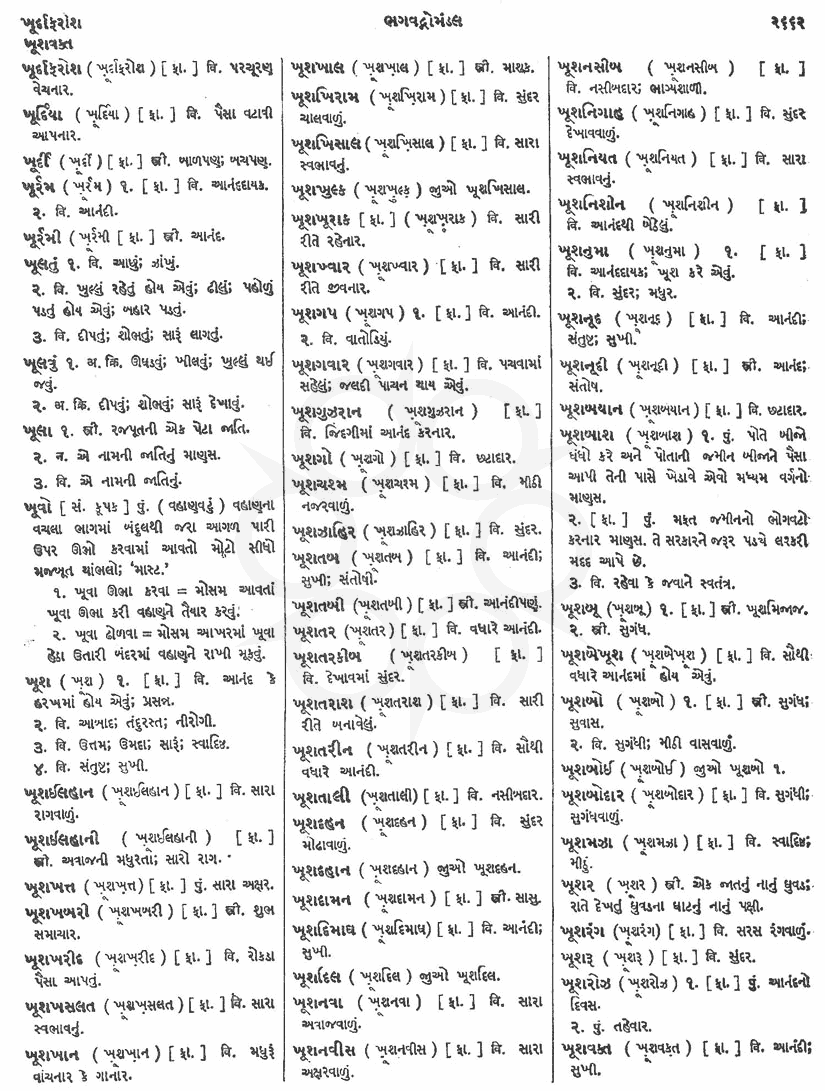 ખૂર્દાફરોશ
ખૂશવક્ત
ભગવદ્ગોમંડલ
૨૬૬૨
ખૂર્દાફરોશ ( ખૂર્દાફ઼રોશ ) [ ફા. ] વિ. પરચૂરણ
વેચનાર.
ખૂર્દિયા ( ખૂર્દિયા ) [ ફા. ] વિ. પૈસા વટાવી
આપનાર.
ખૂર્દી ( ખૂર્દી ) [ ફા. ] સ્ત્રી. બાળપણ; બચપણ.
ખૂર્રમ ( ખ઼ૂર્રમ ) ૧. [ ફા. ] વિ. આનંદદાયક.
૨. વિ. આનંદી.
ખૂર્રમી ( ખ઼ૂર્રમી [ ફા. ] સ્ત્રી. આનંદ.
ખૂલતું ૧. વિ. આછું; ઝાંખું.
૨. વિ. ખુલ્લું રહેતું હોય એવું; ઢીલું; પહોળું
પડતું હોય એવું; બહાર પડતું.
૩. વિ. દીપતું; શોભતું; સારૂં લાગતું.
ખૂલવું ૧. અ. ક્રિ. ઊઘડવું; ખીલવું; ખુલ્લું થઈ
જવું.
૨. અ. ક્રિ. દીપવું; શોભવું; સારૂં દેખાવું.
ખૂલા ૧. સ્ત્રી. રજપૂતની એક પેટા જાતિ.
૨. ન. એ નામની જાતિનું માણસ.
૩. વિ. એ નામની જાતિનું.
ખૂવો [ સં. કૂપક ] પું. ( વહાણવટું ) વહાણના
વચલા ભાગમાં બંદુલથી જરા આગળ પારી
ઉપર ઊભો કરવામાં આવતો મોટો સીધો
મજબૂત થાંભલો; ‘માસ્ટ.’
૧. ખૂવા ઊભા કરવા = મોસમ આવતાં
ખૂવા ઊભા કરી વહાણને તૈયાર કરવું.
૨. ખૂવા ઢોળવા = મોસમ આખરમાં ખૂવા
હેઠા ઉતારી બંદરમાં વહાણને રાખી મૂકવું.
ખૂશ ( ખ઼ૂશ ) ૧. [ ફા. ] વિ. આનંદ કે
હરખમાં હોય એવું; પ્રસન્ન.
૨. વિ. આબાદ; તંદુરસ્ત; નીરોગી.
૩. વિ. ઉત્તમ; ઉમદા; સારૂં; સ્વાદિષ્ટ.
૪. વિ. સંતુષ્ટ; સુખી.
ખૂશઈલહાન ( ખ઼ૂશઈલહાન ) [ ફા. ] વિ. સારા
રાગવાળું.
ખૂશઈલહાની ( ખ઼ૂશઈલહાની ) [ ફા. ]
સ્ત્રી. અવાજની મધુરતા; સારો રાગ.
ખૂશખત્ત ( ખ઼ૂશખ઼ત્ત ) [ ફા. ] પું. સારા અક્ષર.
ખૂશખબરી ( ખ઼ૂશખ઼બરી ) [ ફા. ] સ્ત્રી. શુભ
સમાચાર.
ખૂશખરીદ ( ખ઼ૂશખ઼રીદ ) [ ફા. ] વિ. રોકડા
પૈસા આપતું.
ખૂશખસલત ( ખ઼ૂશખ઼સલત ) [ ફા. ] વિ. સારા
સ્વભાવનું.
ખૂશખાન ( ખ઼ૂશખ઼ાન ) [ ફા. ] વિ. મધુરૂં
વાંચનાર કે ગાનાર.
ખૂશખાલ ( ખ઼ૂશખ઼ાલ ) [ ફા. ] સ્ત્રી. માશક.
ખૂશખિરામ ( ખ઼ૂશખ઼િરામ ) [ ફા. ] વિ. સુંદર
ચાલવાળું.
ખૂશખિસાલ ( ખ઼ૂશખ઼િસાલ ) [ ફા. ] વિ. સારા
સ્વભાવનું.
ખૂશખુલ્ક ( ખ઼ૂશખ઼ુલ્ક ) જુઓ ખૂશખિસાલ.
ખૂશખૂરાક [ ફા. ] ( ખ઼ૂશખ઼ૂરાક ) વિ. સારી
રીતે રહેનાર.
ખૂશખ્વાર ( ખ઼ૂશખ઼્વાર ) [ ફા. ] વિ. સારી
રીતે જીવનાર.
ખૂશગપ ( ખ઼ૂશગપ ) ૧. [ ફા. ] વિ. આનંદી.
૨. વિ. વાતોડિયું.
ખૂશગવાર ( ખ઼ૂશગવાર ) [ ફા. ] વિ. પચવામાં
સહેલું; જલદી પાચન થાય એવું.
ખૂશગુઝરાન ( ખ઼ૂશગુઝરાન ) [ ફા. ]
વિ. જિંદગીમાં આનંદ કરનાર.
ખૂશગો ( ખ઼ૂશગો ) [ ફા. ] વિ. છટાદાર.
ખૂશચશ્મ ( ખ઼ૂશચશ્મ ) [ ફા. ] વિ. મીઠી
નજરવાળું.
ખૂશઝાહિર ( ખ઼ૂશઝાહિર ) [ ફા. ] વિ. સુંદર.
ખૂશતબ ( ખ઼ૂશતબ ) [ ફા. ] વિ. આનંદી;
સુખી; સંતોષી.
ખૂશતબી ( ખ઼ૂશતબી ) [ ફા. ] સ્ત્રી. આનંદીપણું.
ખૂશતર ( ખ઼ૂશતર ) [ ફા. ] વિ. વધારે આનંદી.
ખૂશતરકીબ ( ખ઼ૂશતરકીબ ) [ ફા. ]
વિ. દેખાવમાં સુંદર.
ખૂશતરાશ ( ખ઼ૂશતરાશ ) [ ફા. ] વિ. સારી
રીતે બનાવેલું.
ખૂશતરીન ( ખ઼ૂશતરીન ) [ ફા. ] વિ. સૌથી
વધારે આનંદી.
ખૂશતાલી ( ખ઼ૂશતાલી ) [ ફા. ] વિ. નસીબદાર.
ખૂશદહન ( ખ઼ૂશદહન ) [ ફા. ] વિ. સુંદર
મોઢાવાળું.
ખૂશદહાન ( ખ઼ૂશદહાન ) જુઓ ખૂશદહન.
ખૂશદામન ( ખ઼ૂશદામન ) [ ફા. ] સ્ત્રી. સાસુ.
ખૂશદિમાઘ ( ખ઼ૂશદિમાઘ ) [ ફા. ] વિ. આનંદી;
સુખી.
ખૂશદિલ ( ખ઼ૂશદિલ ) જુઓ ખૂશદિલ.
ખૂશનવા ( ખ઼ૂશનવા ) [ ફા. ] વિ. સારા
અવાજવાળું.
ખૂશનવીસ ( ખ઼ૂશનવીસ ) [ ફા. ] વિ. સારા
અક્ષરવાળું.
ખૂશનસીબ ( ખ઼ૂશનસીબ ) [ ફા. ]
વિ. નસીબદાર; ભાગ્યશાળી.
ખૂશનિગાહ ( ખ઼ૂશનિગાહ ) [ ફા. ] વિ. સુંદર
દેખાવવાળું.
ખૂશનિયત ( ખ઼ૂશનિયત ) [ ફા. ] વિ. સારા
સ્વભાવનું.
ખૂશનિશીન ( ખ઼ૂશનિશીન ) [ ફા. ]
વિ. આનંદથી બેઠેલું.
ખૂશનુમા ( ખ઼ૂશનુમા ) ૧. [ ફા. ]
વિ. આનંદદાયક; ખૂશ કરે એવું.
૨. વિ. સુંદર; મધુર.
ખૂશનૂદ ( ખ઼ૂશનૂદ ) [ ફા. ] વિ. આનંદી;
સંતુષ્ટ; સુખી.
ખૂશનૂદી ( ખ઼ૂશનૂદી ) [ ફા. ] સ્ત્રી. આનંદ;
સંતોષ.
ખૂશબયાન ( ખ઼ૂશબયાન ) [ ફા. ] વિ. છટાદાર.
ખૂશબાશ ( ખ઼ૂશબાશ ) ૧. પું. પોતે બીજો
ધંધો કરે અને પોતાની જમીન બીજાને પૈસા
આપી તેની પાસે ખેડાવે એવો મધ્યમ વર્ગનો
માણસ.
૨. [ ફા. ] પું. મફત જમીનનો ભોગવટો
કરનાર માણસ. તે સરકારને જરૂર પડયે લશ્કરી
મદદ આપે છે.
૩. વિ. રહેવા કે જવાને સ્વતંત્ર.
ખૂશબૂ ( ખ઼ૂશબૂ ) ૧. [ ફા. ] સ્ત્રી. ખૂશમિજાજ.
૨. સ્ત્રી. સુગંધ.
ખૂશબેખૂશ ( ખ઼ૂશબેખ઼ૂશ ) [ ફા. ] વિ. સૌથી
વધારે આનંદમાં હોય એવું.
ખૂશબો ( ખ઼ૂશબો ) ૧. [ ફા. ] સ્ત્રી. સુગંધ;
સુવાસ.
૨. વિ. સુગંધી; મીઠી વાસવાળું.
ખૂશબોઈ ( ખ઼ૂશબોઈ ) જુઓ ખૂશબો ૧.
ખૂશબોદાર ( ખ઼ૂશબોદાર ) [ ફા. ] વિ. સુગંધી;
સુગંધવાળું.
ખૂશમઝા ( ખ઼ૂશમઝા ) [ ફા. ] વિ. સ્વાદિષ્ટ;
મીઠું.
ખૂશર ( ખ઼ૂશર ) સ્ત્રી. એક જાતનું નાનું ઘુવડ;
રાતે દેખતું ઘુવડના ઘાટનું નાનું પક્ષી.
ખૂશરંગ ( ખ઼ૂશરંગ ) [ ફા. ] વિ. સરસ રંગવાળું.
ખૂશરૂ ( ખ઼ૂશરૂ ) [ ફા. ] વિ. સુંદર.
ખૂશરોઝ ( ખ઼ૂશરોઝ ) ૧. [ ફા. ] પું. આનંદનો
દિવસ.
૨. પું. તહેવાર.
ખૂશવક્ત ( ખ઼ૂશવક઼્ત ) [ ફા. ] વિ. આનંદી;
સુખી.